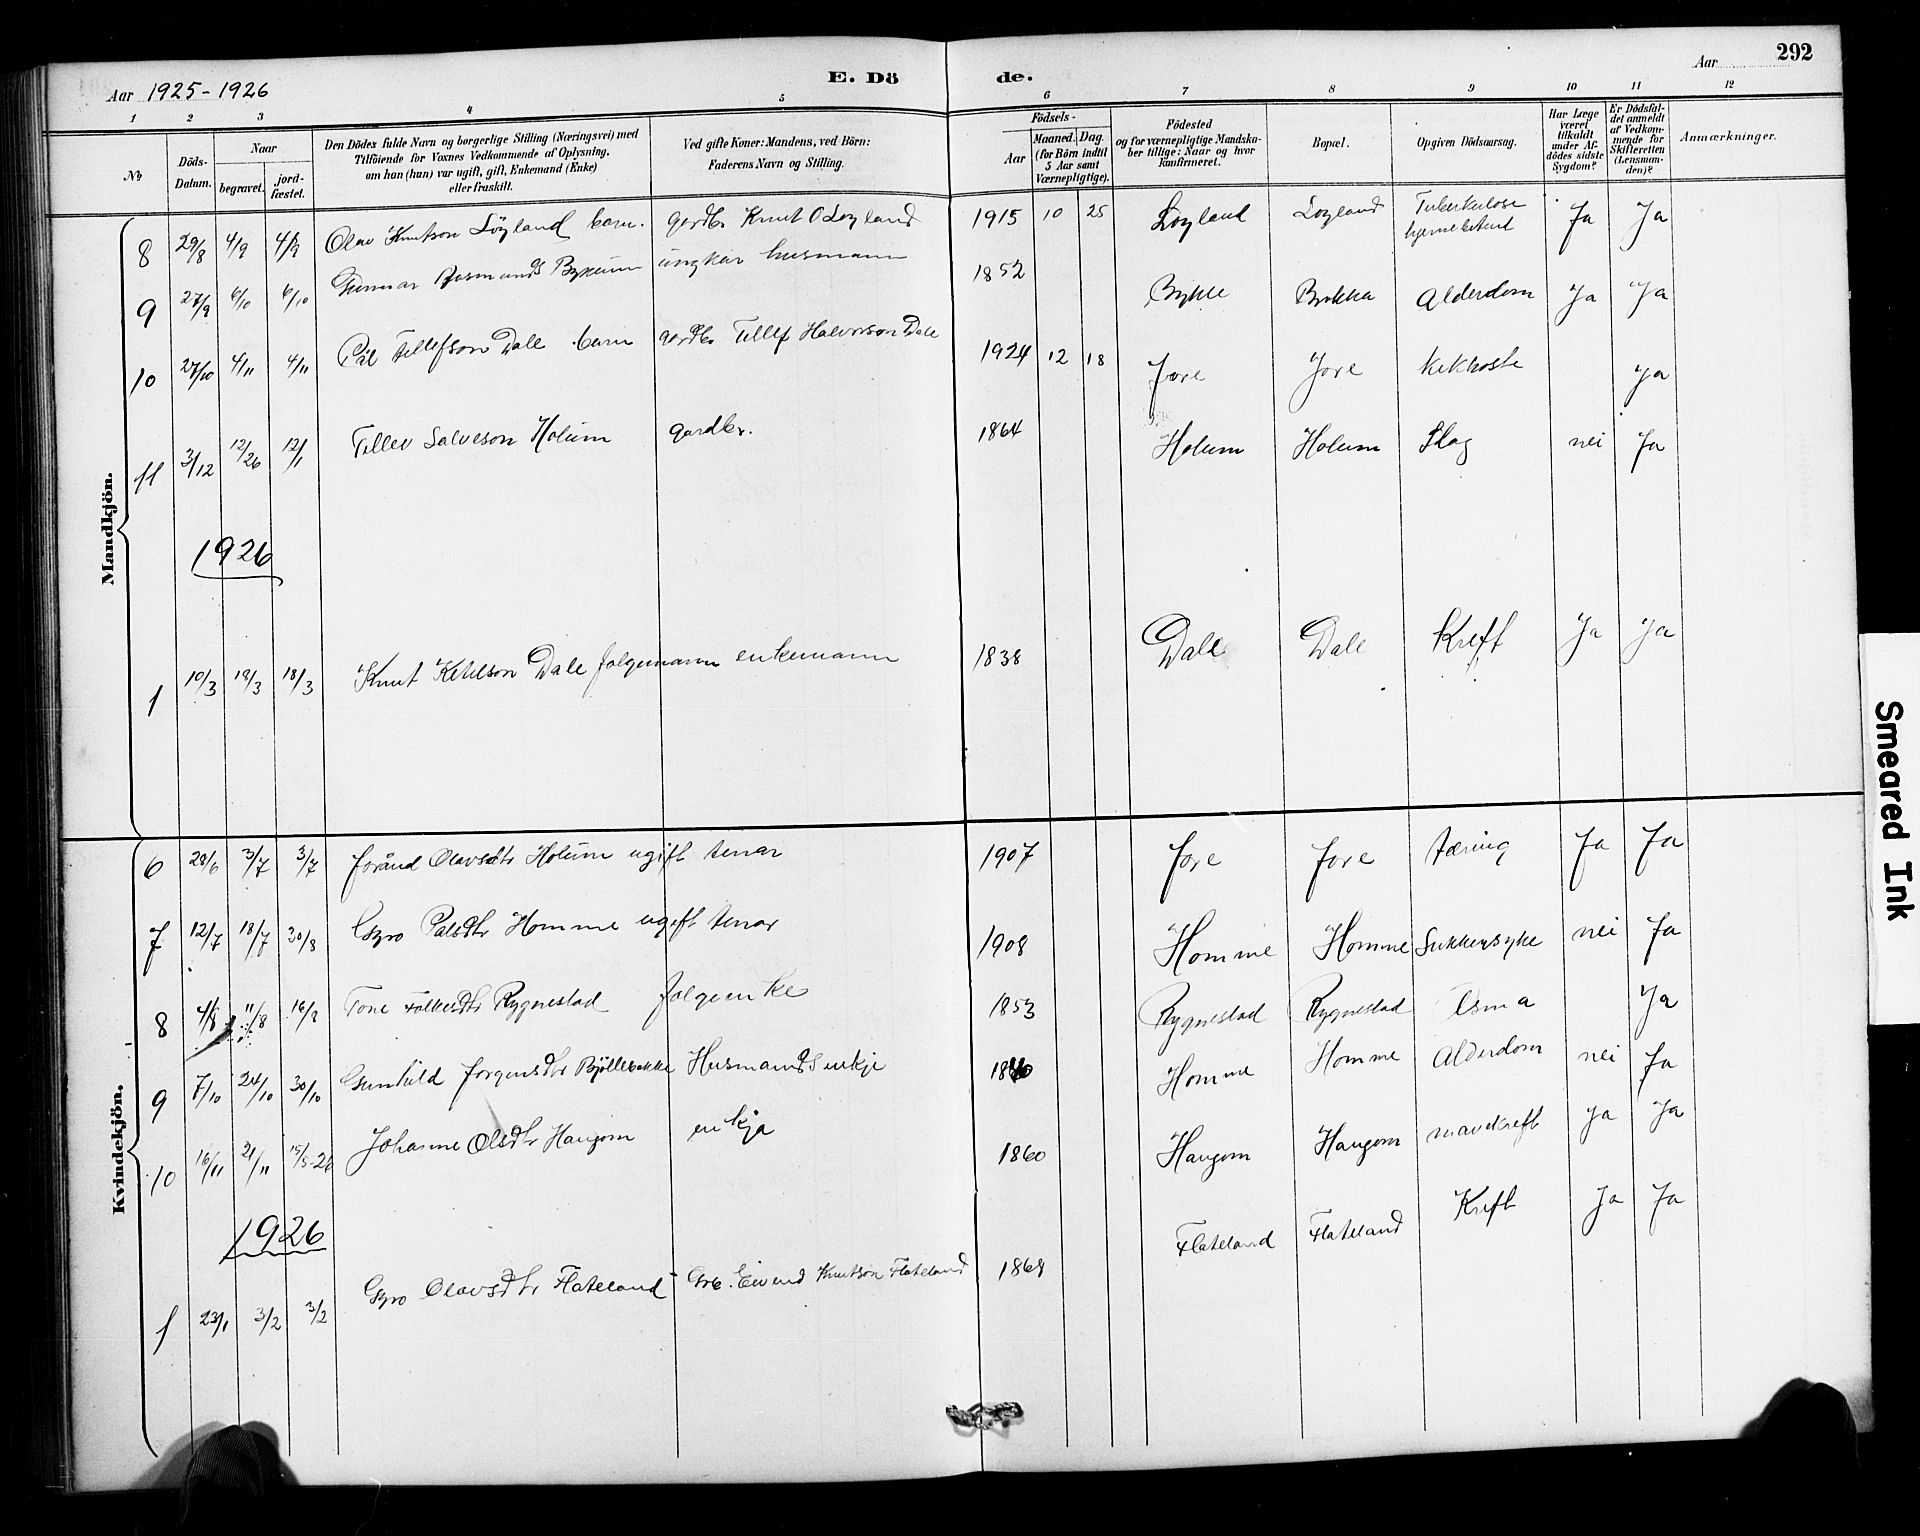 292
Aar 1925-1926
E. Dö de.
Aar
1 2 3 4 5 6 7 8 9 10 11 12
No
Döds-Datum.
Naar
begravet.
jord-fæstet.
Den Dödes fulde Navn og borgerlige Stilling (Næringsvei) med
Tilföiende for Voxnes Vedkommende af Oplysning,
om han (hun) var ugift, gift, Enkemand (Enke)
eller fraskilt.
Ved gifte Koner: Mandens, ved Börn:
Faderens Navn og Stilling.
Födsels-
Aar
Maaned. Dag.
(for Börn indtil
5 Aar samt
Værnepligtige).
Födested
og for værnepligtige Mandska-
ber tillige: Naar og hvor
konfirmeret.
Bopæl.
Opgiven Dödsaarsag.
Har Læge
været
tilkaldt
under Af-
dödes sidste
Sygdom?
Er Dödsfal-
det anmeldt
af Vedkom-
mende for
Skifteretten
(Lensman-
den)?
Anmærkninger.
Mandkjön.
8 29/8 4/9 4/9 Olav Knutson Löyland barn. gardbr Knut O Loyland 1915 10 25 Loyland Loyland Tuberkulose hjernebetend Ja Ja
9 27/9 6/10 6/10 Gunnar Aasmunds Bykum ungkar husmann 1852 Bykle Brokka Alderdom Ja Ja
10 27/10 4/11 4/11 Pål Tellefson Dale barn gardbr Tellef Halvorson Dale 1924 12 18 Jore Jore Kikhoste Ja
11 3/12 12/26 12/1 Tellev Salveson Holum gardbr. 1864 Holum Holum Slag nei Ja
1926
1 10/3 18/3 18/3 Knut Ketilson Dale folgemann enkemann 1838 Dale Dale Kreft Ja Ja
Kvindekjön.
6 28/6 3/7 3/7 Joránd Olavsdtr Holum ugift tenar 1907 Jore Jore Tæring Ja Ja
7 12/7 18/7 30/8 Gyro Palsdtr Homme ugift tenar 1908 Homme Homme Sukkersyke nei Ja
8 4/8 11/8 16/8 Tone Folkesdtr Rygnestad folgeenke 1853 Rygnestad Rygnestad Asma Ja
9 7/10 24/10 30/10 Gunhild Jorgensdtr Bjöllebekke Husmands enkje Homme Homme Alderdom nei Ja
10 16/11 21/11 15/5-26 Johanne Olsdtr Haugom enkja 1860 Haugom Haugom mavekreft Ja Ja
1926
1 23/1 3/2 3/2 Gyro Olavsdtr Flateland Grb. Eivend Knutson Flateland 1868 Flateland Flateland Kreft Ja Ja
Smeared Ink